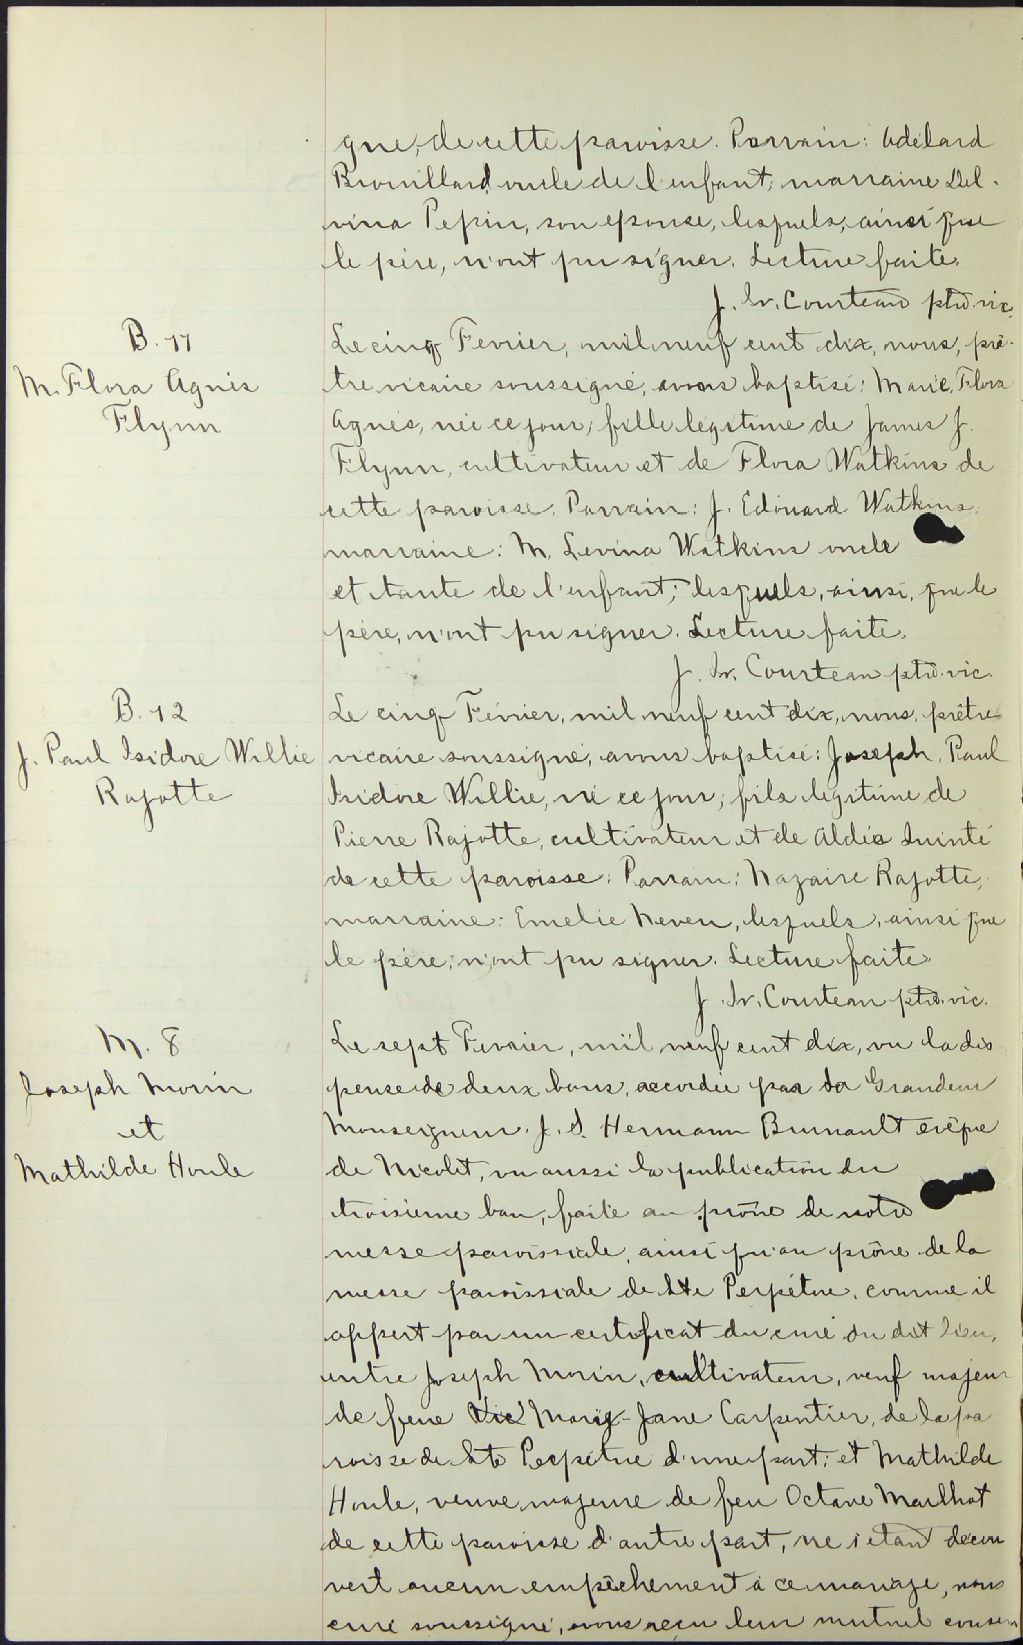 gne, de cette paroisse. Parrain: Adélard
Brouillard oncle de l'enfant; marraine Del-
vina Pepin, son épouse, lesquels, ainsi que
le père, n'ont pu signer. Lecture faite.
J. Iv. Courteau ptre. vic.
B. 11
M. Flora Agnès
Flynn
Le cinq Fevrier, mil neuf cent dix, nous, prê-
tre vicaire soussigné, avons baptisé: Marie, Flora
Agnès, née ce jour; fille légitime de James J.
Flynn, cultivateur et de Flora Watkins de
cette paroisse. Parrain: J. Edouard Watkins;
marraine: M. Levina Watkins oncle
et tante de l'enfant; lesquels, ainsi, que le
père, n'ont pu signer. Lecture faite.
J. Iv. Courteau ptre. vic.
B. 12
J. Paul Isidore Willie
Rajotte
Le cinq Février, mil neuf cent dix, nous, prêtre
vicaire soussigné, avons baptisé: Joseph, Paul
Isidore Willie, né ce jour; fils légitime de
Pierre Rajotte, cultivateur et de Aldéa
de cette paroisse; Parrain: Nazaire Rajotte;
marraine: Emelie Neveu, lesquels, ainsi que
le père, n'ont pu signer. Lecture faite.
J. Iv. Courteau ptre. vic.
M. 8
Joseph Morin
et
Mathilde Houle
Le sept Fevrier, mil neuf cent dix, vu la dis
pense de deux bans, accordée par Sa Grandeur
Monseigneur J. S. Hermann Brunault évêque
de Nicolet, vu aussi la publication du
troisième ban, faite au prône de notre
messe paroissiale, ainsi qu'au prône de la
messe paroissiale de Ste Perpétue, comme il
appert par un certificat du curé du dit lieu,
entre Joseph Morin, cultivateur, veuf majeur
de feue Marie-Jane Carpentier, de la pa
roisse de Ste Perpétue d'une part; et Mathilde
Houle, veuve majeure de feu Octave Mailhot
de cette paroisse d'autre part, ne s'étant décou
vert aucun empêchement à ce mariage, nous
curé soussigné, avons reçu leur mutuel consen